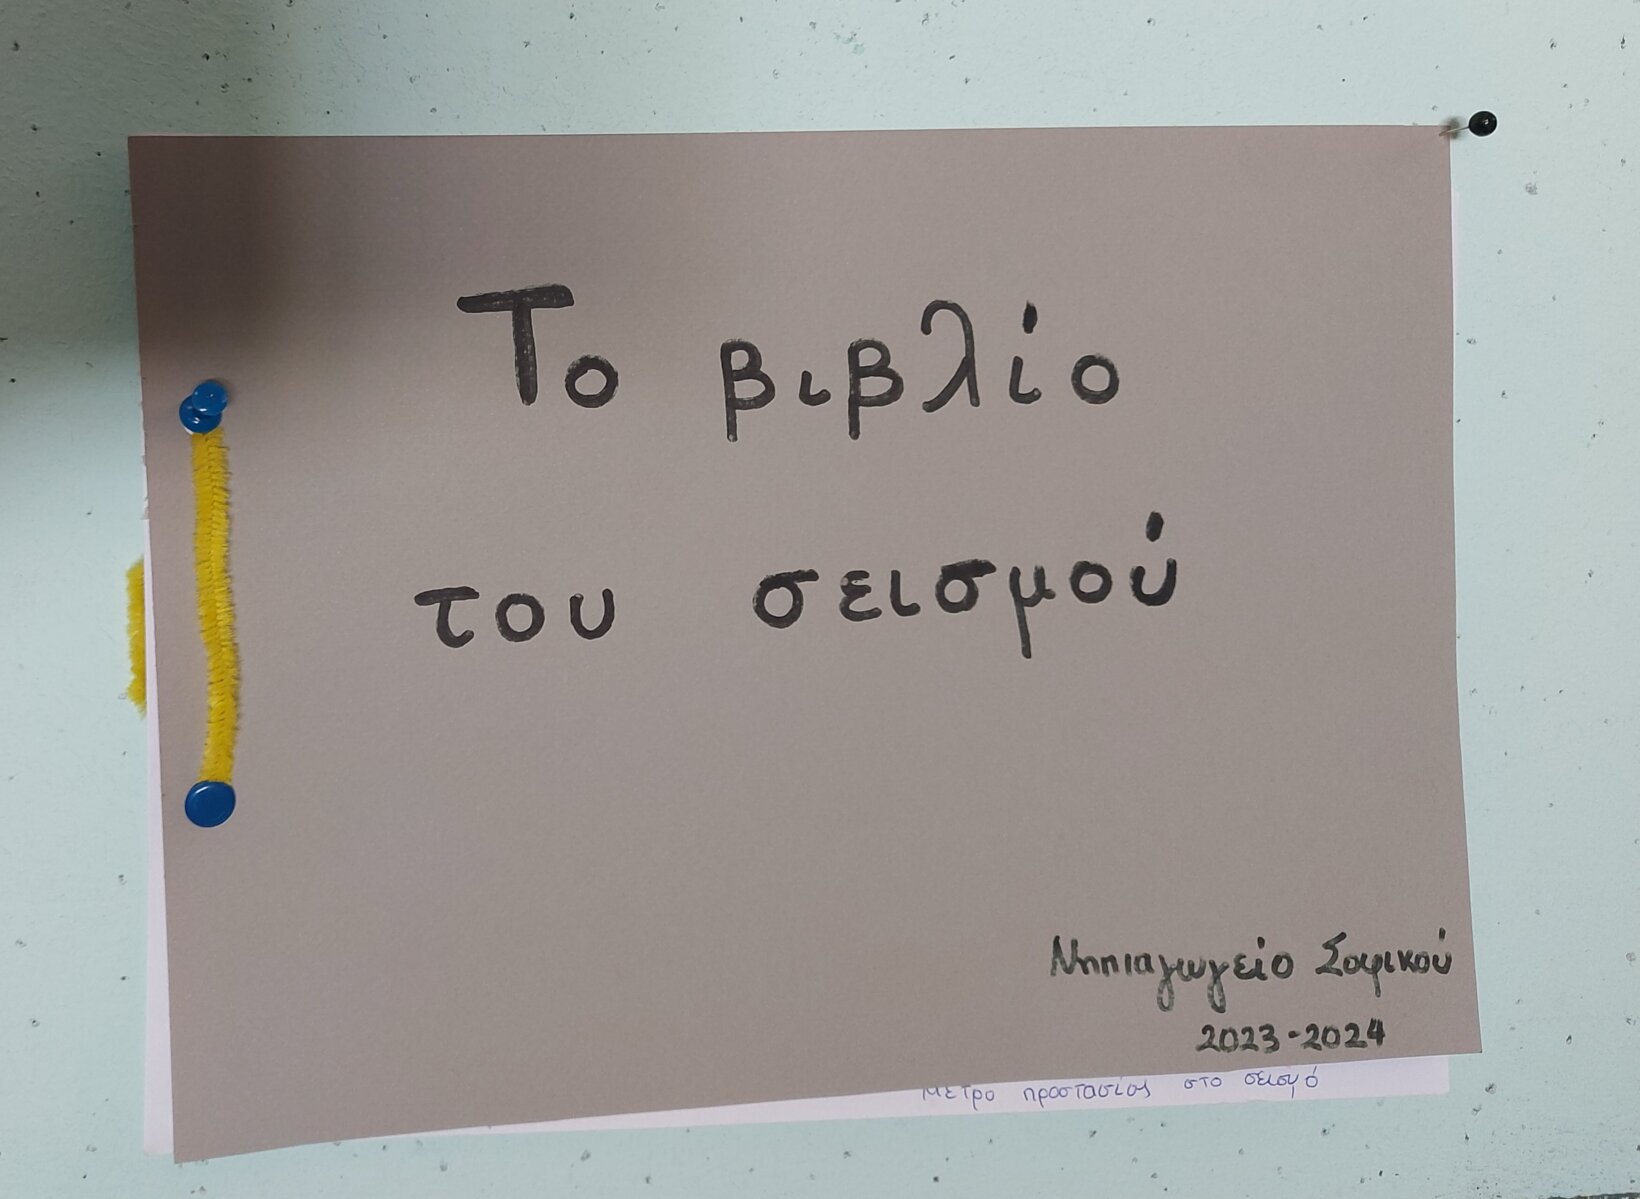 Το βιβλίο
του σεισμού
Νηπιαγωγείο Σοφικού
2023-2024
Μέτρο προστασίας στο σεισμό